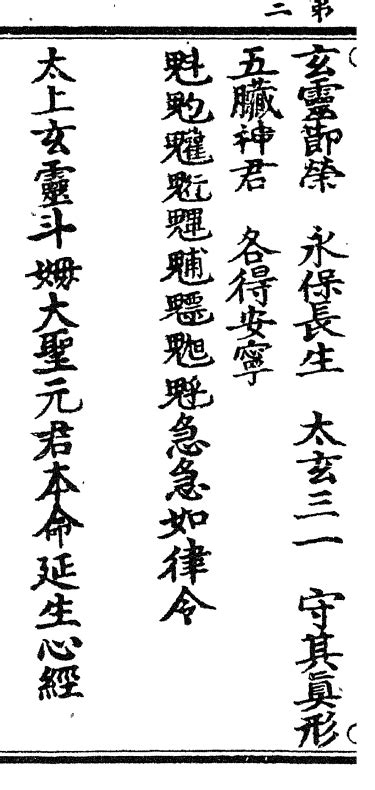 玄靈節榮　永保長生　太玄三一　守其眞形
五臟神君　各得安寧
魁急急如律令
太上玄靈斗姆大聖元君本命延生心經